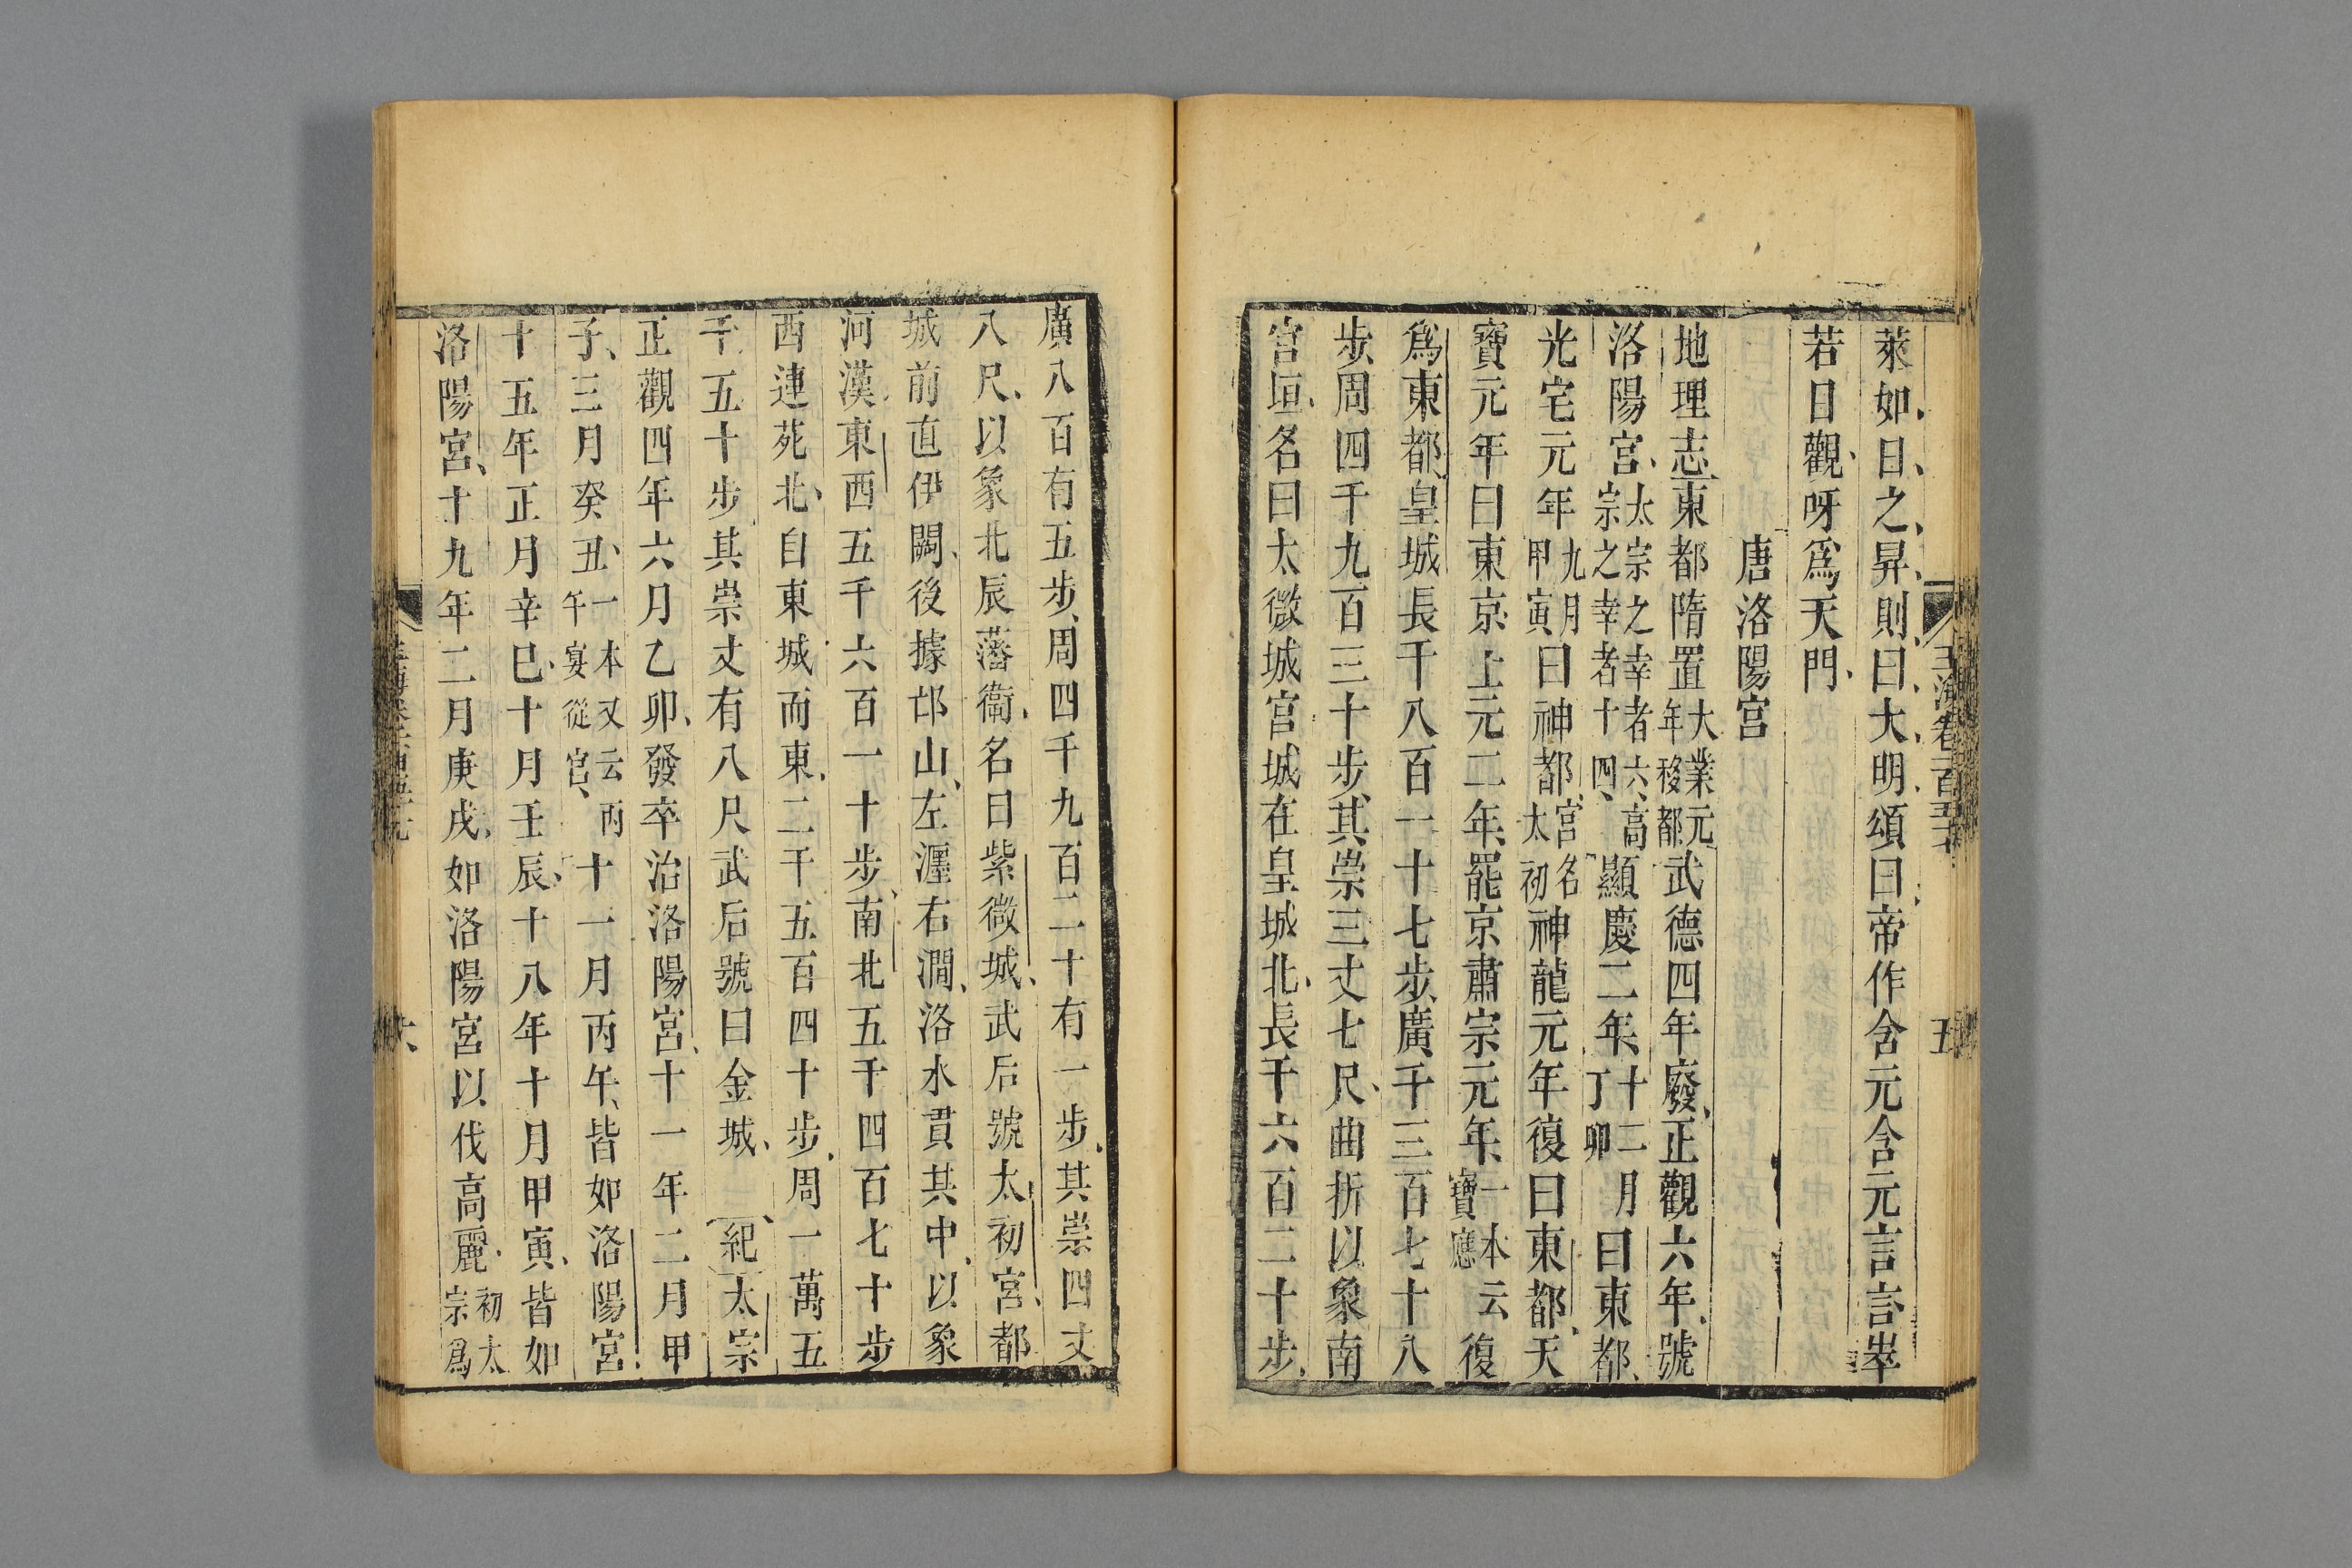 萊如日之昇則曰大明頌曰帝作含元含元言言崒
若日觀呀爲天門
唐洛陽宮
地理志東都隋置大業元年移都武德四年廢正觀六年號
洛陽宮太宗之幸者六高宗之幸者十四顯慶二年十二月丁卯曰東都
光宅元年九月甲寅曰神都宮名太初神龍元年復曰東都天
寶元年曰東京上元二年罷京肅宗元年一本云寶應復
爲東都皇城長千八百一十七步廣千三百七十八
步周四千九百三十步其崇三丈七尺曲折以象南
宮垣名曰太微城宮城在皇城北長千六百二十步
玉海卷一百五十
五
廣八百有五步周四千九百二十有一步其崇四丈
八尺以象北辰藩衛名曰紫微城武后號太初宮都
城前直伊闕後據邙山左瀍右澗洛水貫其中以象
河漢東西五千六百一十步南北五千四百七十步
西連苑北自東城而東二千五百四十步周一萬五
千五十步其崇丈有八尺武后號曰金城紀太宗
正觀四年六月乙卯發卒治洛陽宮十一年二月甲
子三月癸丑一本又云丙午宴從官十一月丙午皆如洛陽宮
十五年正月辛巳十月壬辰十八年十月甲寅皆如
洛陽宮十九年二月庚戌如洛陽宮以伐高麗初太宗爲
六